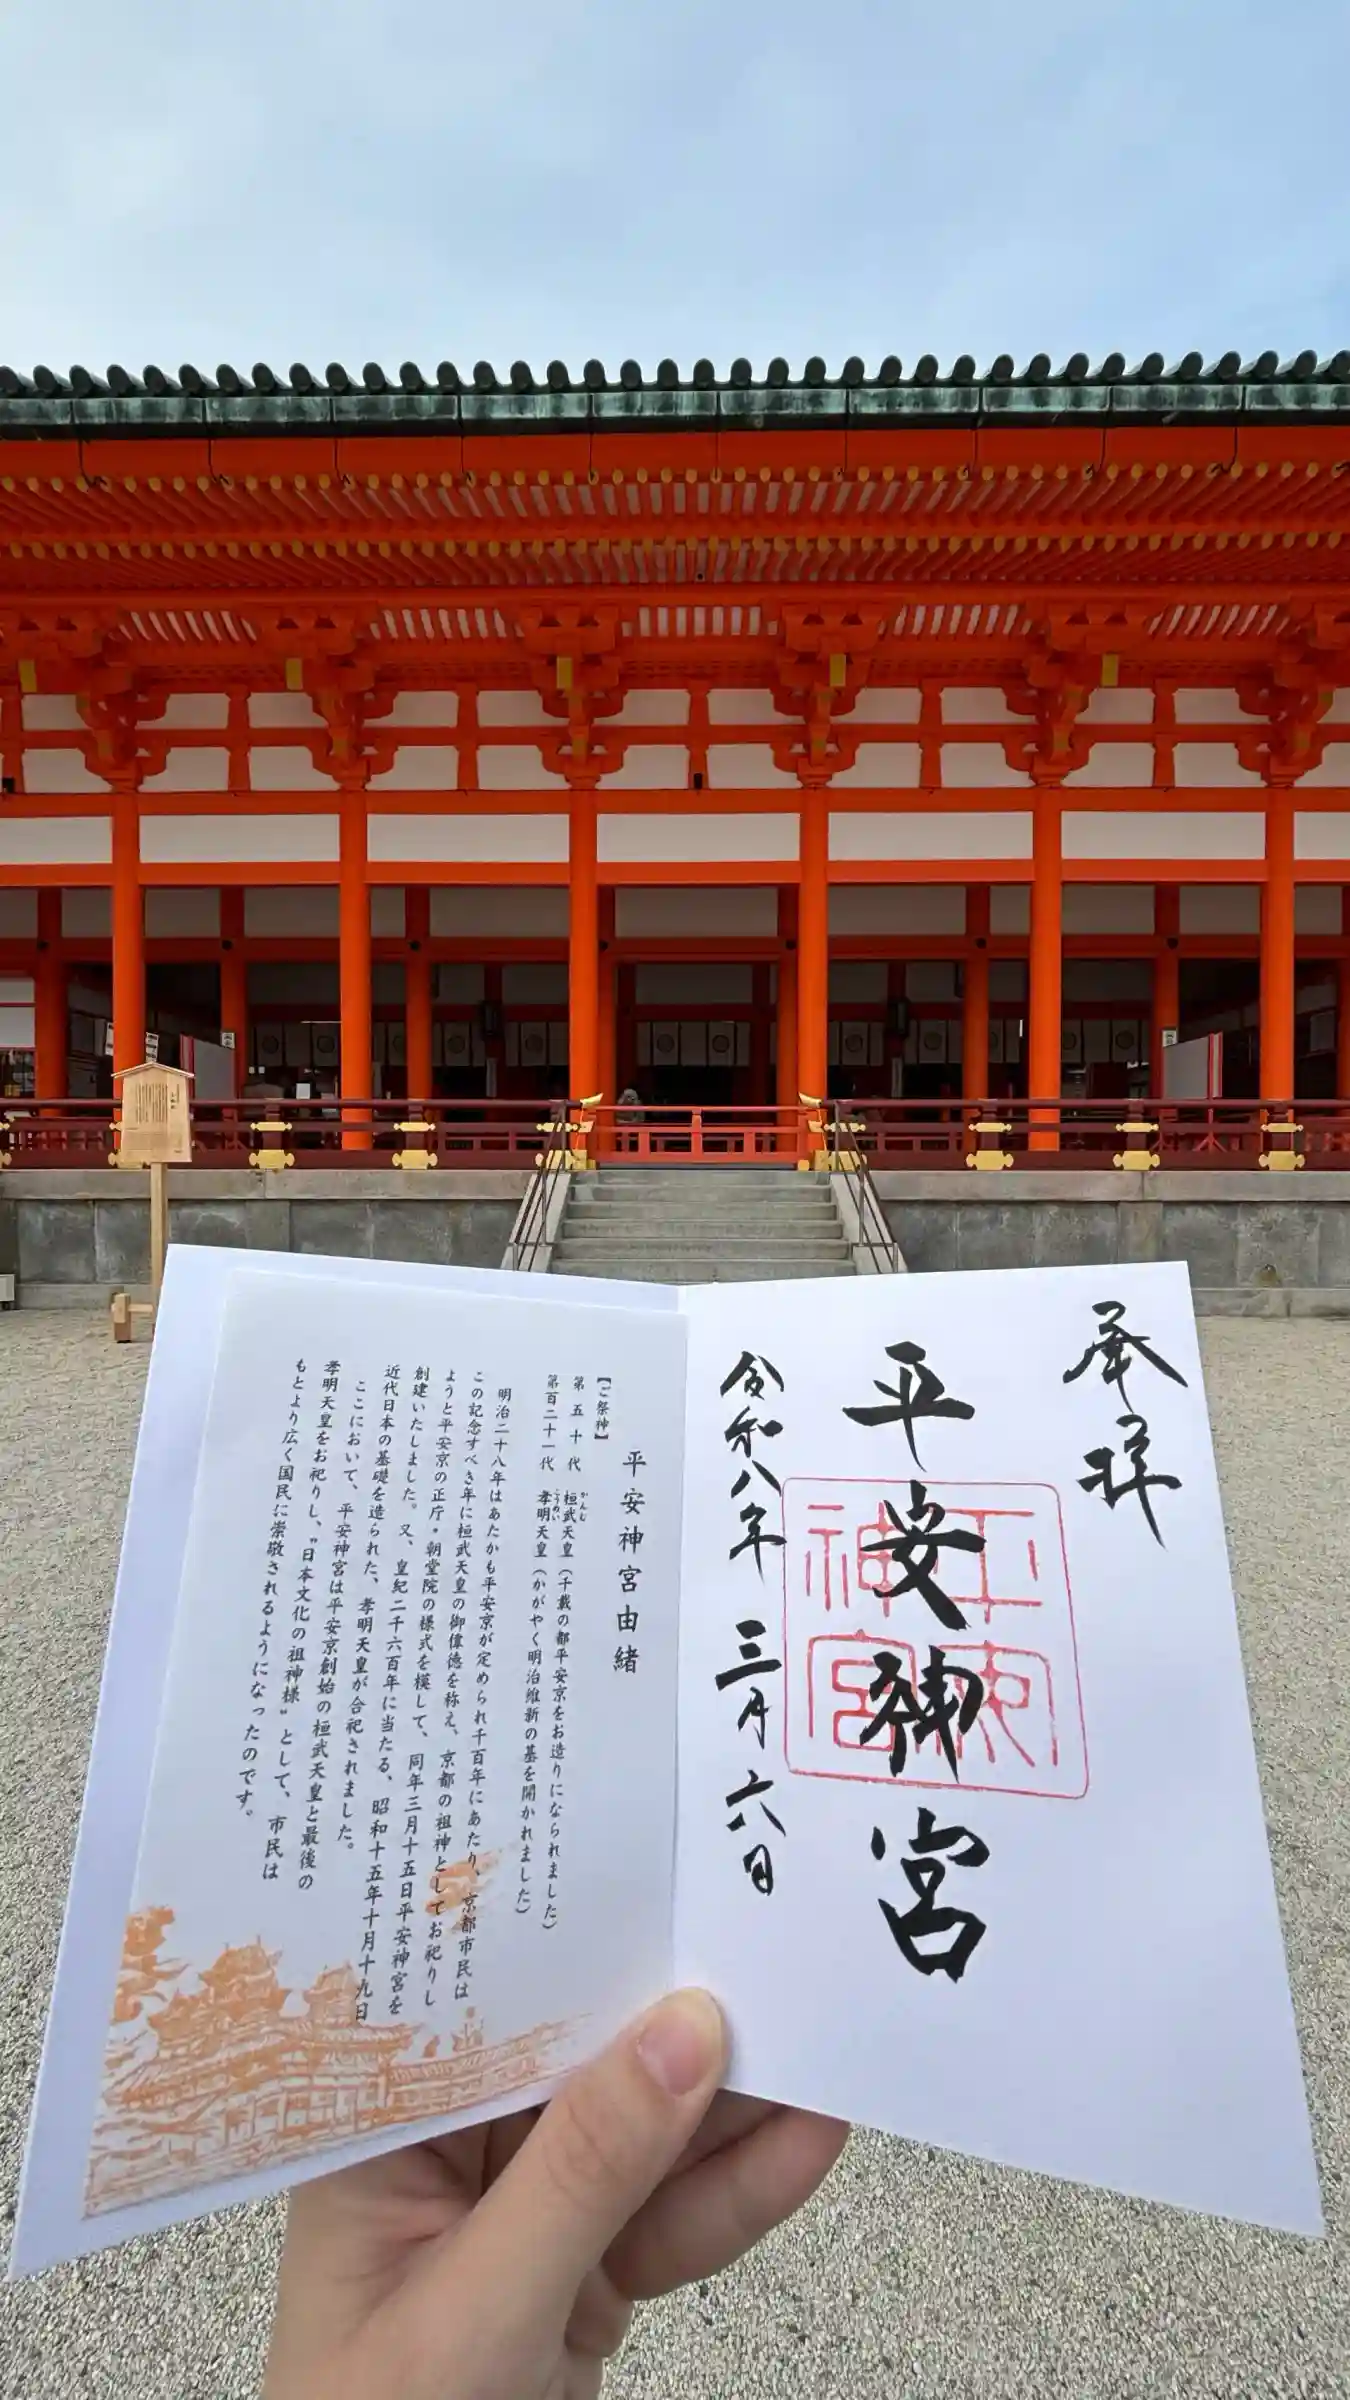 奉拝
平安神宮
平安神宮
令和八年 三月 六日
平安神宮由緒
【ご祭神】
第五十代 桓武天皇（千載の都平安京をお造りになられました）
かんむ
第百二十一代 孝明天皇（かがやく明治維新の基を開かれました）
こうめい
明治二十八年はあたかも平安京が定められ千百年にあたり、京都市民は
この記念すべき年に桓武天皇の御偉徳を称え、京都の祖神としてお祀りし
ようと平安京の正庁・朝堂院の様式を模して、同年三月十五日平安神宮を
創建いたしました。又、皇紀二千六百年に当たる、昭和十五年十月十九日
近代日本の基礎を造られた、孝明天皇が合祀されました。
ここにおいて、平安神宮は平安京創始の桓武天皇と最後の
孝明天皇をお祀りし、〝日本文化の祖神様〟として、市民は
もとより広く国民に崇敬されるようになったのです。